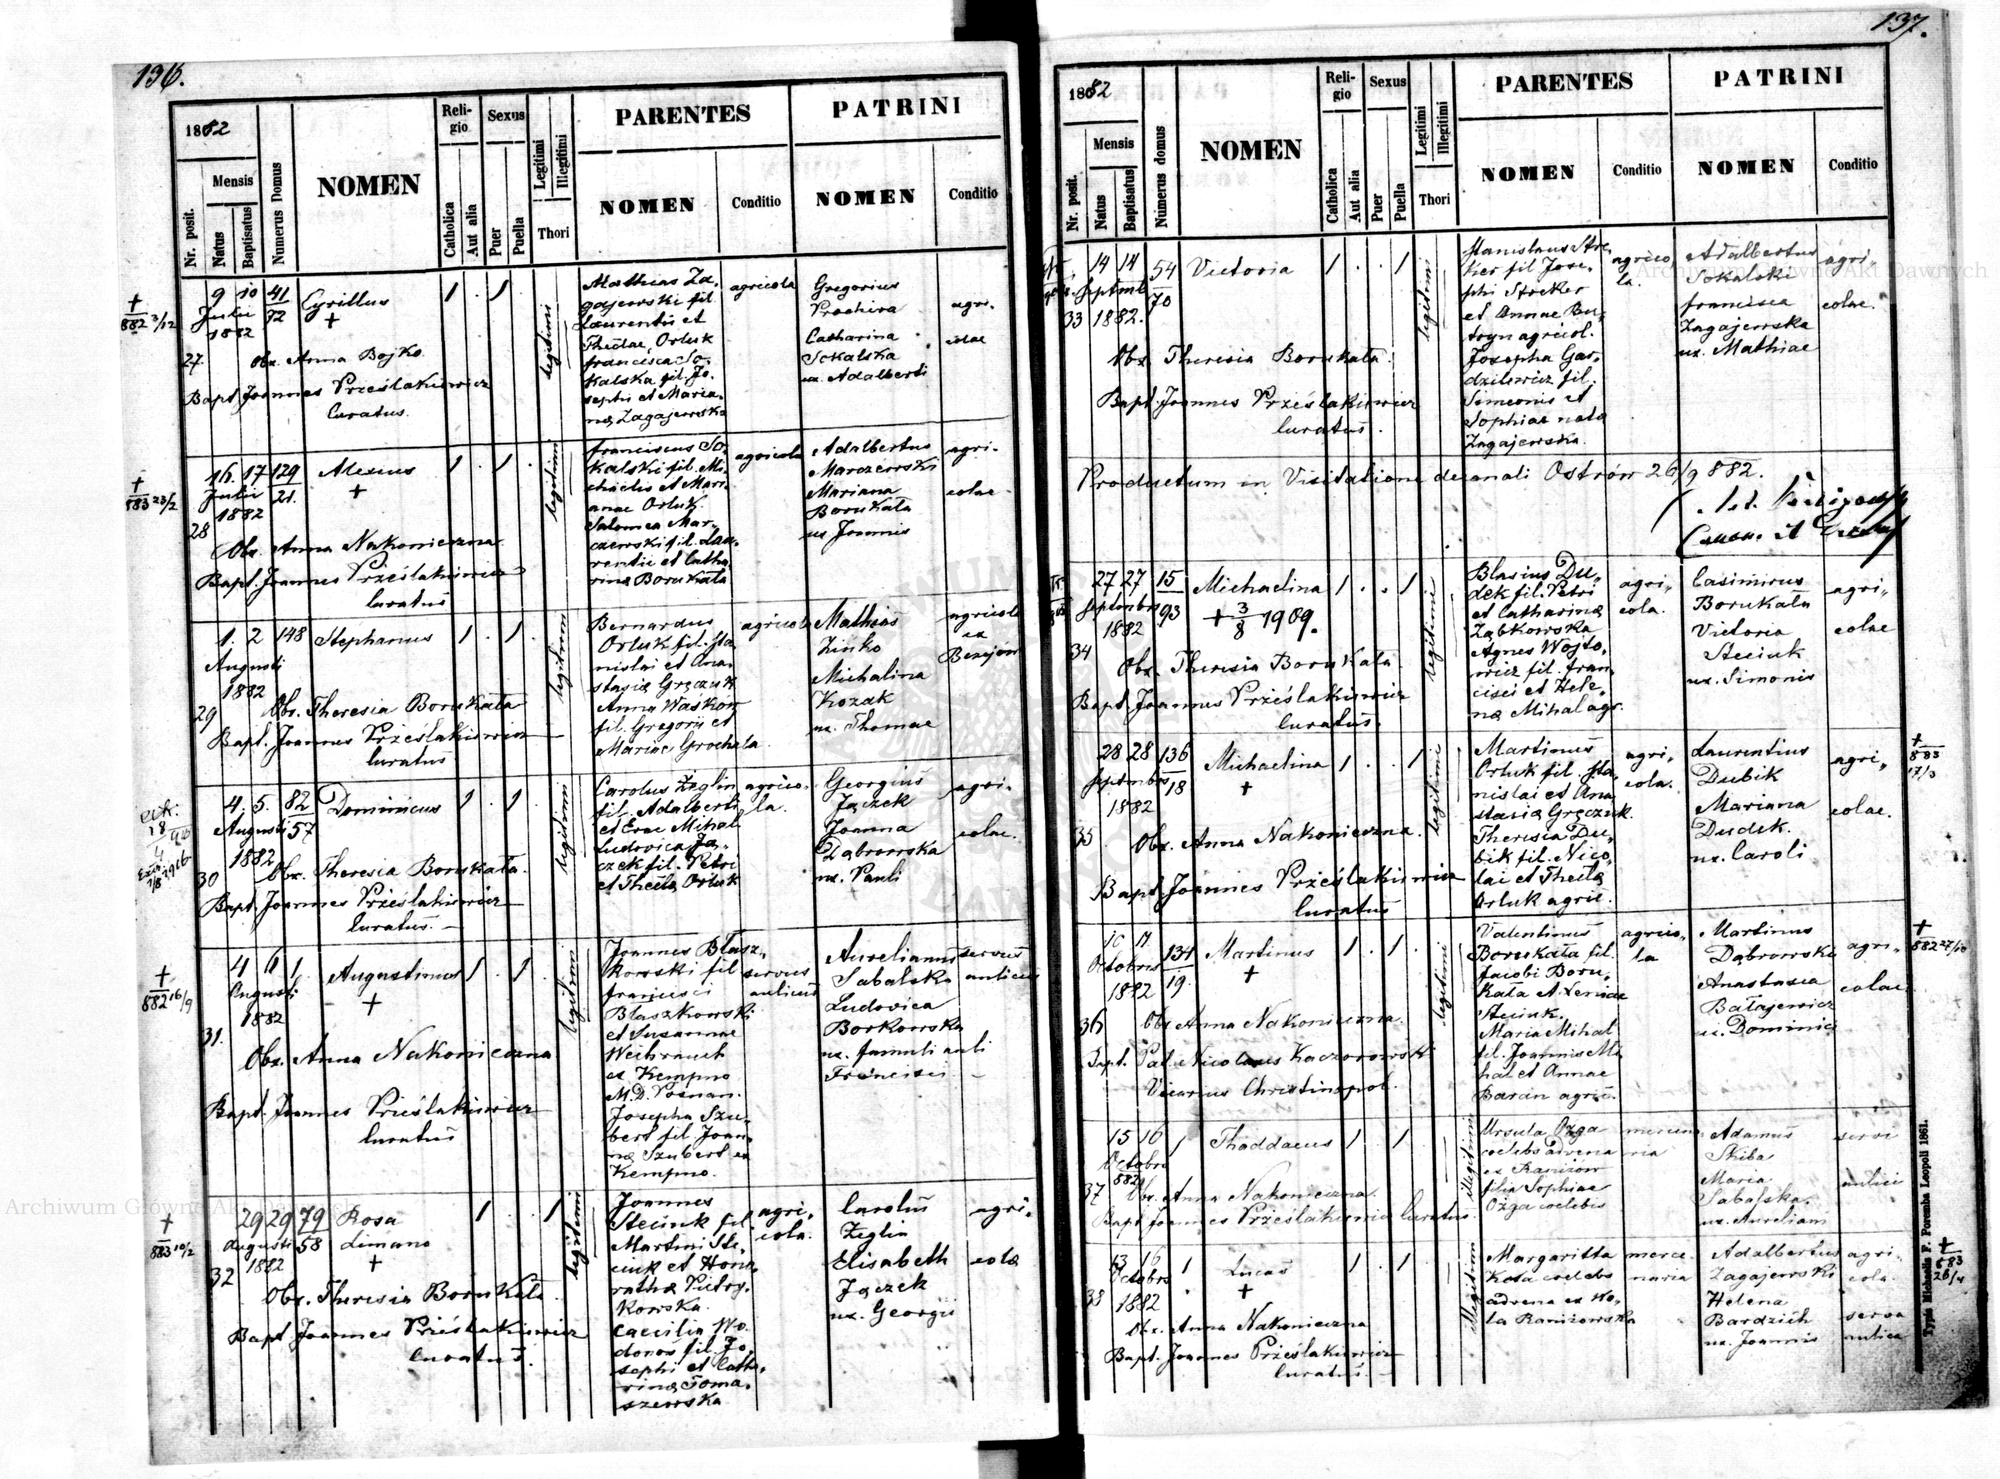 136.
1882
Mensis
Nr. posit.
Natus
Baptisatus
Numerus Domus
NOMEN
Religio
Catholica
Aut alia
Sexus
Puer
Puella
Legitimi
Illegitimi
Thori
PARENTES
NOMEN
Conditio
PATRINI
NOMEN
Conditio
+
882 3/12
27
9 10
Julii
1882
41
72
Cyrillus
+
1 . 1 .
legitimi
Obs. Anna Bojko
Bapt. Joannes Prześlakiewicz
Curatus.
Mathias Za-
gajewski fil.
Laurentii et
Theclae Orluk
francisca So-
kalska fil. Jo-
sephi et Maria-
na Zagajewska
agricola
Gregorius
Prochira
Catharina
Sokalska
ux. Adalberti
agri-
colae
+
883 23/2
28
16. 17
Julii
1882
129
21.
Alexius
+
1 . 1 .
legitimi
Obs. Anna Nakonieczna
Bapt. Joannes Prześlakiewicz
Curatus
franciscus So-
kalski fil. Mi-
chaelis et Mari-
anae Orluk.
Salomea Mar-
czewski fil. Lau-
rentii et Catha-
rina Borukała
agricola
Adalbertus
Marczewski
Mariana
Borukała
ux Joannis
agri-
colae
29
1. 2
Augusti
1882
148
Stephanus
1 . 1 .
legitimi
Obs. Theresia Borukała
Bapt. Joannes Prześlakiewicz
Curatus
Bernardus
Orluk fil. Sta-
nislai et Ana-
stasia Gręczuk
Anna Waskon
fil. Gregorii et
Mariae Grochala
agricola
Mathias
Zinko
Michalina
Kozak
ux. Thomae
agricola
ex
Benjów
30
4. 5.
Augusti
1882
82
57
Dominicus
1 . 1 .
legitimi
Obs. Theresia Borukała.
Bapt. Joannes Prześlakiewicz
Curatus.
Carolus Żeglin
fil. Adalberti
et Evae Mihal
Ludovica Ja-
czek fil. Petri
et Thecla Orluk
agrico-
la.
Georgius
Jączek
Joanna
Dąbrowska
ux. Pauli
agri-
colae.
+
882 16/9
31.
4 6
Augusti
1882
1
Augustinus
+
1 . 1 .
legitimi
Obs. Anna Nakonieczna
Bapt. Joannes Prześlakiewicz
Curatus
Joannes Błasz-
kowski fil
francisci
Błaszkowski
et Susannae
Weihrauch
ex Kempno
M.D. Posnan.
Josepha Szu-
bert fil. Joan-
na Szubert ex
Kempno.
servus
aulicus
Aurelianus
Sabalska
Ludovica
Borkowska
ux. famuli auli
Francisci
servus
aulicus
+
883 10/2
32
29 29
Augusti
1882
79
58
Rosa
Limano
+
1 . . 1
legitimi
Obs. Theresia Borukała.
Bapt. Joannes Prześlakiewicz
Curatus.
Joannes
Steciuk fil
Martini Ste-
ciuk et Hono-
ratha Pietry-
kowska.
Caecilia Wo-
doros fil. Jo-
sephi et Catha-
rina Toma-
szewska
agri-
cola.
Carolus
Żeglin
Elisabeth
Jączek
ux. Georgii
agri-
cola
137.
1882
Mensis
Nr. posit.
Natus
Baptisatus
Numerus domus
NOMEN
Religio
Catholica
Aut alia
Sexus
Puer
Puella
Legitimi
Illegitimi
Thori
PARENTES
NOMEN
Conditio
PATRINI
NOMEN
Conditio
33
14 14
Septmb
1882.
54
70
Victoria
1 . . 1
legitimi
Obs. Theresia Borukała.
Bapt. Joannes Prześlakiewicz
Curatus.
Stanislaus Stre-
ker fil Jose-
phi Streker
et Annae Bu-
tryn agricol.
Josepha Gar-
dzilewicz fil.
Simeonis et
Sophiae nata
Zagajewska.
agrico-
la.
Adalbertus
Sokalski
francisca
Zagajewska
ux. Mathiae
agri-
colae.
Productum in Visitatione decanali Ostrów 26/9 882.
34
27 27
Septmbris
1882
15
93
Michaelina
+ 3/8 1909.
1 . . 1
legitimi
Obs. Theresia Borukała.
Bapt. Joannes Prześlakiewicz
Curatus.
Blasius Du-
dek fil. Petri
et Catharina
Ząbkowska
Agnes Wojto-
wicz fil. fran-
cisci et Hele-
na Mihal agr.
agri-
cola.
Casimirus
Borukała
Victoria
Steciuk
ux. Simonis
agri-
colae
+
883
17/3
35
28 28
Septmbris
1882
136
18
Michaelina
+
1 . . 1
legitimi
Obs. Anna Nakonieczna.
Bapt. Joannes Prześlakiewicz
Curatus
Martinus
Orluk fil. Sta-
nislai et Ana
stasia Gręczuk.
Theresia Du-
bik fil. Nico-
lai et Thecla
Orluk agric.
agri-
cola.
Laurentius
Dubik
Mariana
Dudek.
ux. Caroli
agri-
colae.
+
882 27/10
36
10 11
Octobris
1882
134
19.
Martinus
+
1 . 1 .
legitimi
Obs Anna Nakonieczna.
Bapt. Pat. Nicolaus Kaczorowski
Vicarius Christinopol.
Valentinus
Borukała fil.
Jacobi Boru-
kała et Xeniae
Steciuk.
Maria Mihal
fil. Joannis Mi-
hal et Annae
Baran agric.
agrico-
la
Martinus
Dąbrowski
Anastasia
Batajewicz
ux. Dominici
agri-
colae
37
15 16
Octobris
882
1
Thaddaeus
1 . 1 .
illegitimi
Obs. Anna Nakonieczna.
Bapt Joannes Prześlakiewicz Curatus.
Ursula Ożga
coelebs advena
ex Raniżów
filia Sophiae
Ożga coelebis
mercena
ria
Adamus
Skiba
Maria
Sabajska.
ux. Aureliani
servi
aulici
+
883
26/4
38
13 16
Octobris
1882
1
Lucas
+
1 . 1 .
illegitimi
Obs. Anna Nakonieczna
Bapt. Joannes Prześlakiewicz
Curatus.
Margaritta
Kota coelebs
advena ex Wo-
la Raniżowska
merce-
naria
Adalbertus
Zagajewski
Helena
Bardzich
ux. Joannis
agri-
cola.
serva
aulica
Typis Michaelis F. Poremba Leopoli 1861.
Archiwum Główne Akt Dawnych
Archiwum Główne Akt Dawnych